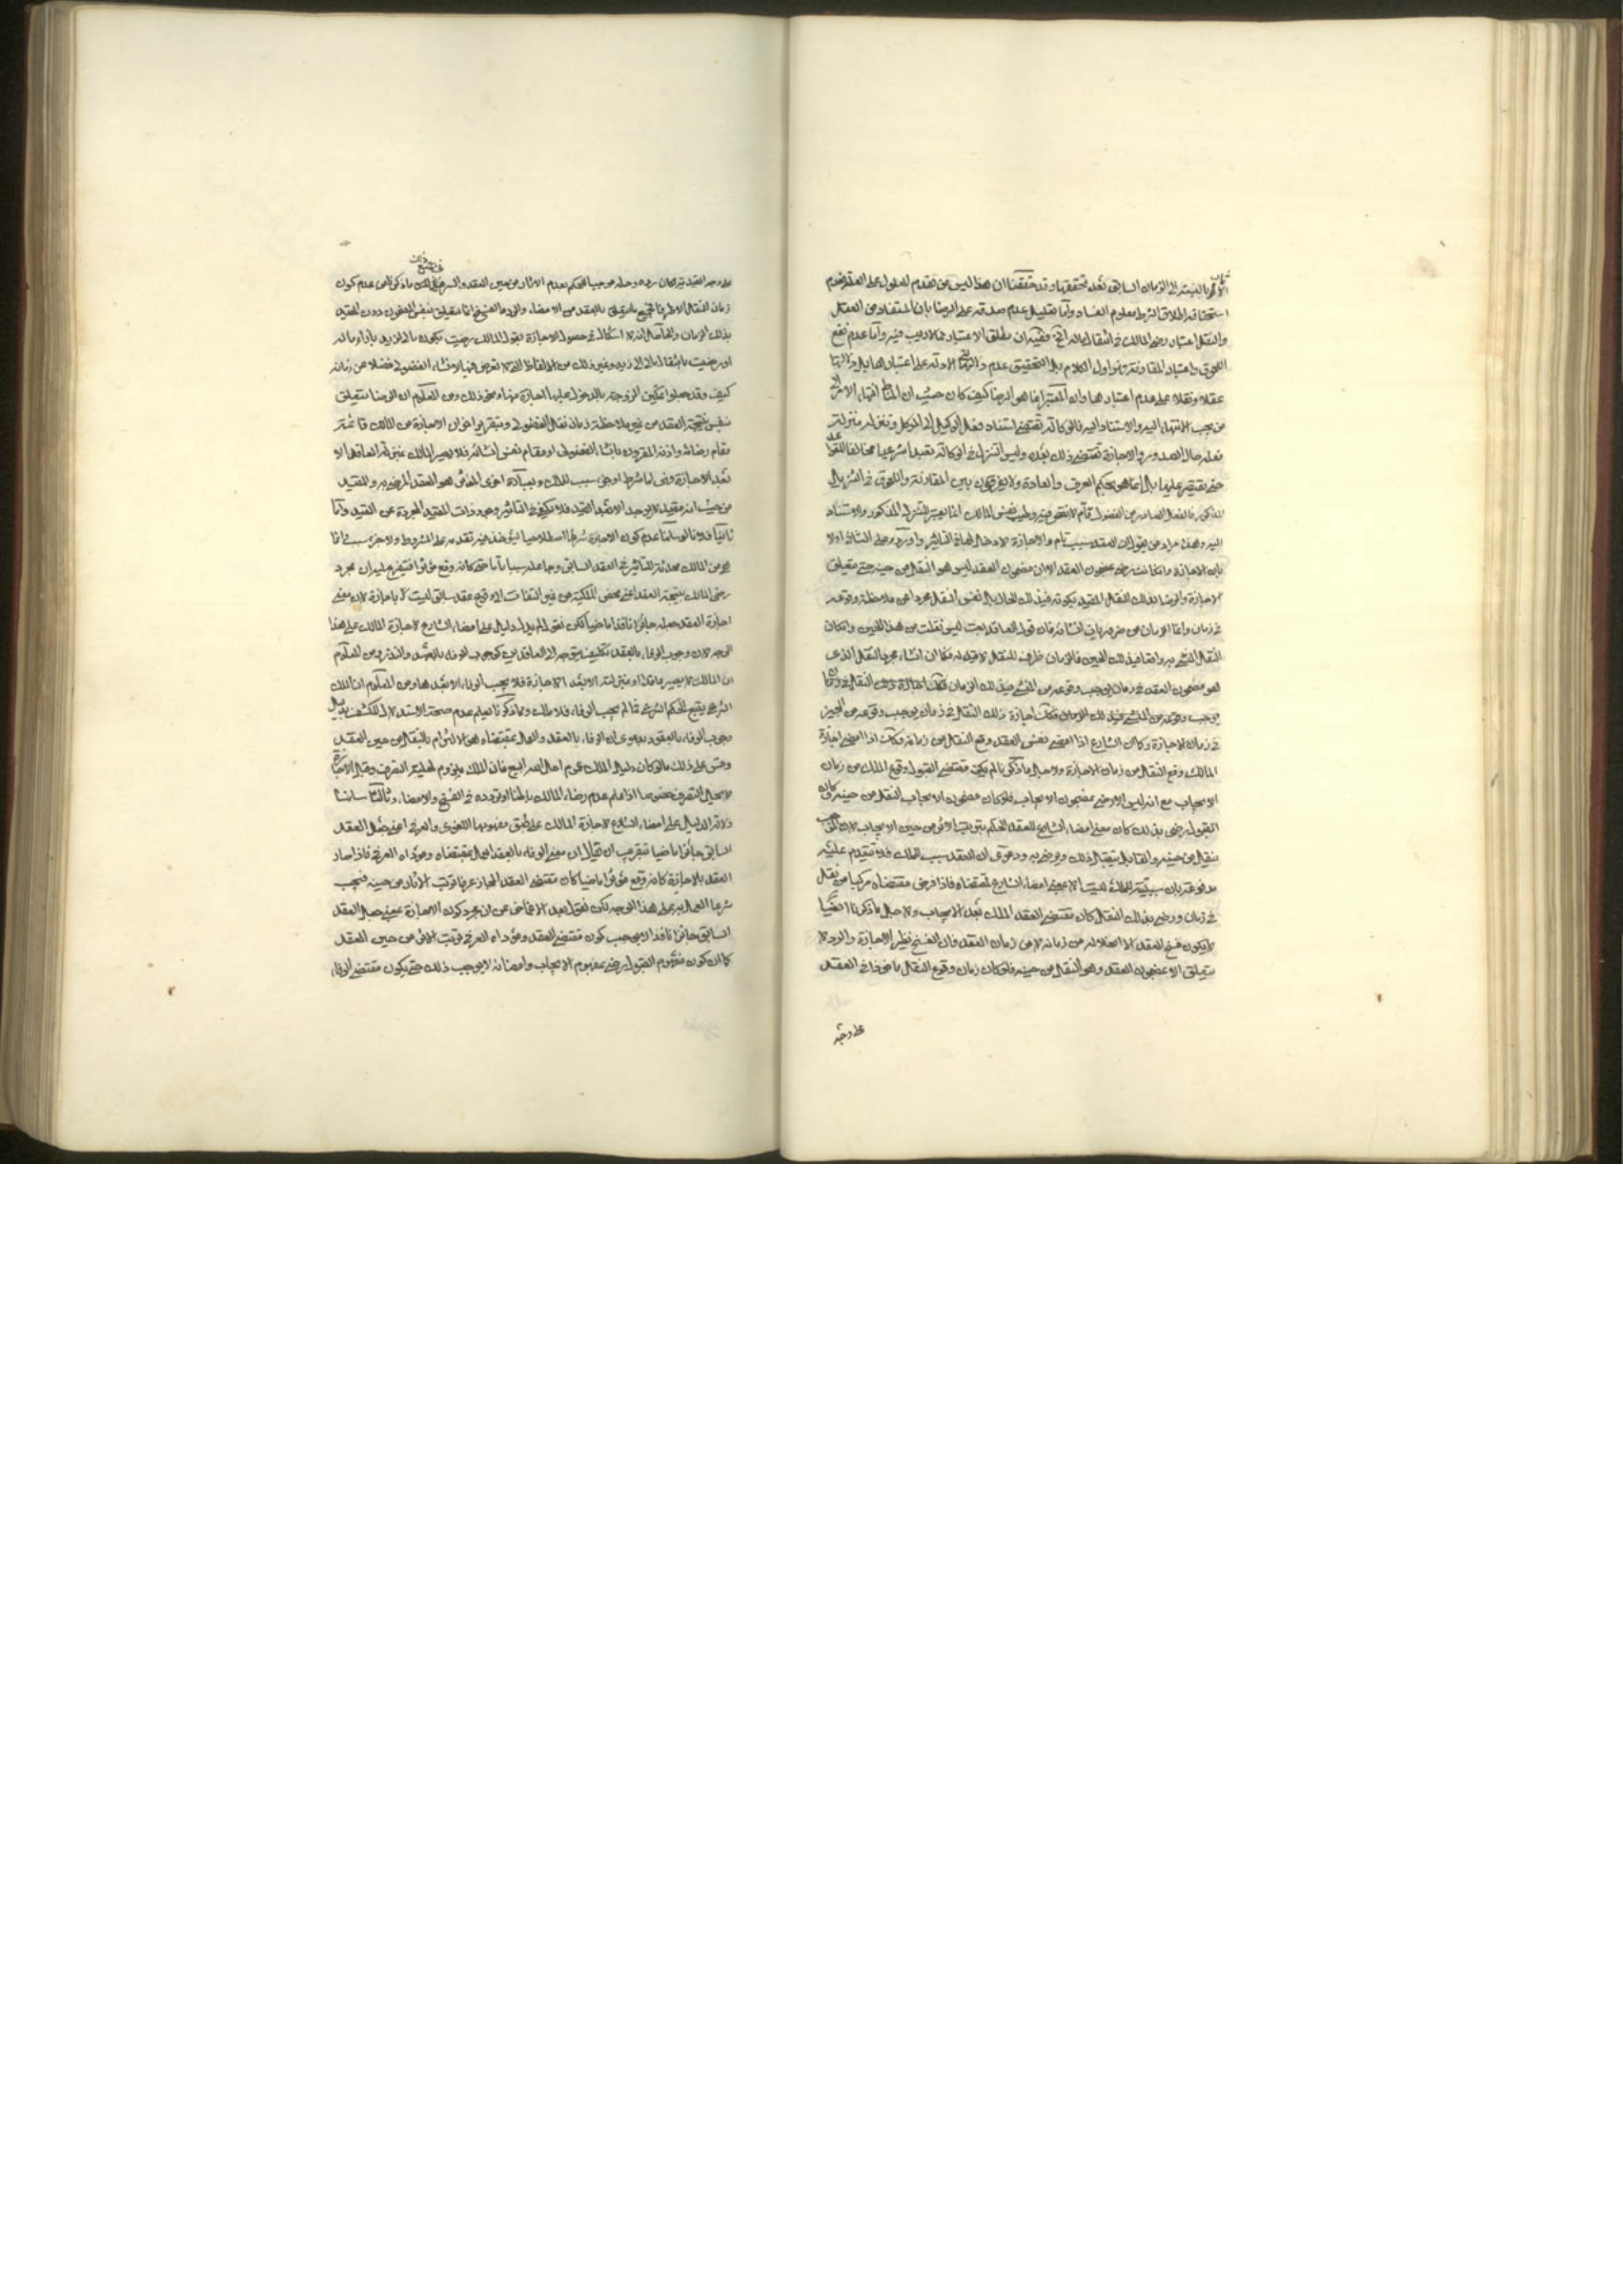 الاثر بالنسبة الى الزمان السابق بعد تحققها وقد حققنا ان هذا ليس من تقدم المعلول على العلة وعدم
وانتقل اعتبار رضى المالك في انتقال ماله
اللحوق واعتبار المقارنة فهو اول الكلام بل التحقيق عدم دلالة الادلة على اعتبارها بل دلالتها
عقلا ونقلا على عدم اعتبارها وان المعتبر انما هو الرضا كيف كان حيث ان المناط انتهاء الامر الى
من يجب الانتهاء اليه والاستناد اليه فالوكالة تقتضي استناد فعل الوكيل الى الموكل وتنزله منزلة
فعله حال الصدور والاجازة تقتضي ذلك بعد وليس التنزيل في الوكالة تعبدا شرعيا مخالفا للقواعد
حتى يقتصر عليها بل انما هو بحكم العرف والعادة ولا يفرقون بين المقارنة واللحوق في التنزيل
المذكور فالفعل الصادر من الفضول تام لا نقص فيه وطيب نفس المالك انما يعتبر للتنزيل المذكور والاستناد
اليه وهذا مراد من يقول ان العقد سبب تام والاجازة لا دخل لها في التاثير واورد على الثاني اولا
بان الاجازة وان كانت رضى بمضمون العقد الا ان مضمون العقد ليس هو النقل من حينه حتى يتعلق
الاجازة والرضا بذلك النقل المقيد بكونه في ذلك الحال بل نفس النقل مجردا عن ملاحظة وقوعه
في زمان وانما الزمان من ضروريات انشائه فان قول العاقد بعت ليس نقلت من هذا الحين وان كان
النقل المنشأ به واقعا في ذلك الحين فالزمان ظرف للنقل لا قيد له فكما ان انشاء مجرد النقل الذي
هو مضمون العقد في زمان يوجب وقوعه من المنشئ في ذلك الزمان فكذلك اجازة ذلك النقل في زمان
يوجب وقوعه من المنشئ في ذلك الزمان فكذلك اجازة ذلك النقل في زمان يوجب وقوعه من المجيز
في زمان الاجازة وكما ان الشارع اذا امضى نفس العقد وقع النقل من زمانه فكذلك اذا امضى اجازة
المالك وقع النقل من زمان الاجازة ولاجل ما ذكرنا لم يكن مقتضى القبول وقوع الملك من زمان
الايجاب مع انه ليس الا رضى بمضمون الايجاب فلو كان مضمون الايجاب النقل من حينه وكان
القبول رضى بذلك كان معنى امضاء الشارع للعقد الحكم بترتب الاثر من حين الايجاب لان الموجب
ينقل من حينه والقابل يتقبل ذلك ويرضى به ودعوى ان العقد سبب الملك فلا يتقدم عليه
مدفوعة بان سببيته للملك ليست الا بمعنى امضاء الشارع لمقتضاه فاذا فرض مقتضاه مركبا من نقل
في زمان ورضى بذلك النقل كان مقتضى العقد الملك بعد الايجاب ولاجل ما ذكرنا ايضا
لا يكون فسخ العقد الا انحلاله من زمانه لا من زمان العقد فان الفسخ نظير الاجازة والرد لا
يتعلق الا بمضمون العقد وهو النقل من حينه فلو كان زمان وقوع النقل ماخوذا في العقد
على وجه
على وجه القيدية لكان رده وحله موجبا للحكم بعدم الاثار من حين العقد والسر في جميع ذلك ما ذكرنا من عدم كون
زمان النقل الا ظرفا فجميع ما يتعلق بالعقد من الامضاء والرد والفسخ انما يتعلق بنفس المضمون دون المقيد
بذلك الزمان والحاصل انه لا اشكال في حصول الاجازة بقول المالك رضيت بكون مالي لزيد بازاء ماله
او رضيت بانتقال مالي الى زيد وغير ذلك من الالفاظ التي لا تعرض فيها لانشاء الفضولي فضلا عن زمانه
كيف وقد جعلوا تمكين الزوجة بالدخول عليها اجازة منها ونحو ذلك ومن المعلوم ان الرضا يتعلق
بنفس نتيجة العقد من غير ملاحظة زمان نقل الفضولي وبتقرير اخر ان الاجازة من المالك قائمة
مقام رضائه واذنه المقرون بانشاء الفضولي او مقام نفس انشائه فلا يصير المالك بمنزلة العاقد الا
بعد الاجازة فهي اما شرط او جزء سبب للملك وبعبارة اخرى المؤثر هو العقد المرضي به والمقيد
من حيث انه مقيد لا يوجد الا بعد القيد فلا يكفي في التاثير وجود ذات المقيد المجردة عن القيد واما
ثانيا فلانا لو سلمنا عدم كون الاجازة شرطا اصطلاحيا ليؤخذ فيه تقدمه على المشروط ولا جزء سبب انما
هي من المالك محدثة للتاثير في العقد السابق وجاعلة سببا تاما حتى كانه وقع مؤثرا فيتفرع عليه ان مجرد
رضى المالك بنتيجة العقد اعني محض الملكية من غير التفات الى وقوع عقد سابق ليست باجازة لان معنى
اجازة العقد جعله جائزا نافذا ماضيا لكن نقول لم يدل دليل على امضاء الشارع لاجازة المالك على هذا
الوجه لان وجوب الوفاء بالعقد تكليف يتوجه الى العاقدين كوجوب الوفاء بالعهد والنذر ومن المعلوم
ان المالك لا يصير عاقدا او بمنزلته الا بعد الاجازة فلا يجب الوفاء الا بعدها ومن المعلوم ان الملك
الشرعي يتبع الحكم الشرعي فما لم يجب الوفاء فلا ملك ومما ذكرنا يعلم عدم صحة الاستدلال للكشف بدليل
وجوب الوفاء بالعقود بدعوى ان الوفاء بالعقد والعمل بمقتضاه هو الالتزام بالنقل من حين العقد
وقس على ذلك ما لو كان دليل الملك عموم احل الله البيع فان الملك ملزوم لحلية التصرف وقبل الاجازة
لا يحل التصرف خصوصا اذا علم عدم رضاء المالك باطنا او تردده في الفسخ والامضاء وثالثا سلمنا
دلالة الدليل على امضاء الشارع لاجازة المالك على طبق مفهومها اللغوي والعرفي اعني جعل العقد
السابق جائزا ماضيا بتقريب ان يقال ان معنى الوفاء بالعقد العمل بمقتضاه ومؤداه العرفي فاذا صار
العقد بالاجازة كانه وقع مؤثرا ماضيا كان مقتضى العقد المجاز عرفا ترتب الاثار من حينه فيجب
شرعا العمل به على هذا الوجه لكن نقول بعد الاغماض عن ان مجرد كون الاجازة بمعنى جعل العقد
السابق جائزا نافذا لا يوجب كون مقتضى العقد ومؤداه العرفي ترتب الاثر من حين العقد
كما ان كون مفهوم القبول رضى بمفهوم الايجاب وامضائه لا يوجب ذلك حتى يكون مقتضى الوفاء